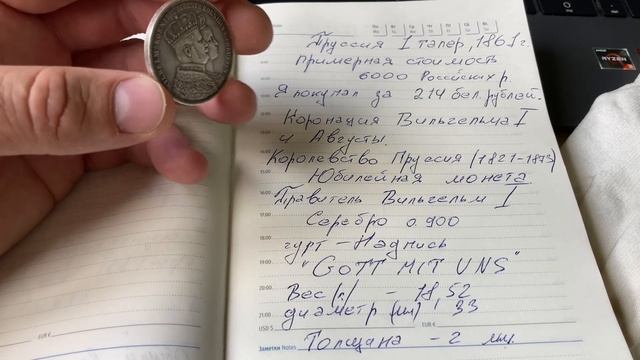 Пруссия 1 талер, 1861 г.
примерная стоимость
6000 Российских р.
Я покупал за 214 бел. рублей.
Коронация Вильгельма I
и Августы.
Королевство Пруссия (1821-1873)
Юбилейная монета
Правитель Вильгельм I
Серебро 0.900
гурт - Надпись
"GOTT MIT UNS"
Вес (г) - 18,52
диаметр (мм) 33
Толщина - 2 мм.
RYZEN
18:00
19:00
20:00
21:00
USD $
EUR €
EUR €
Заметки Notes